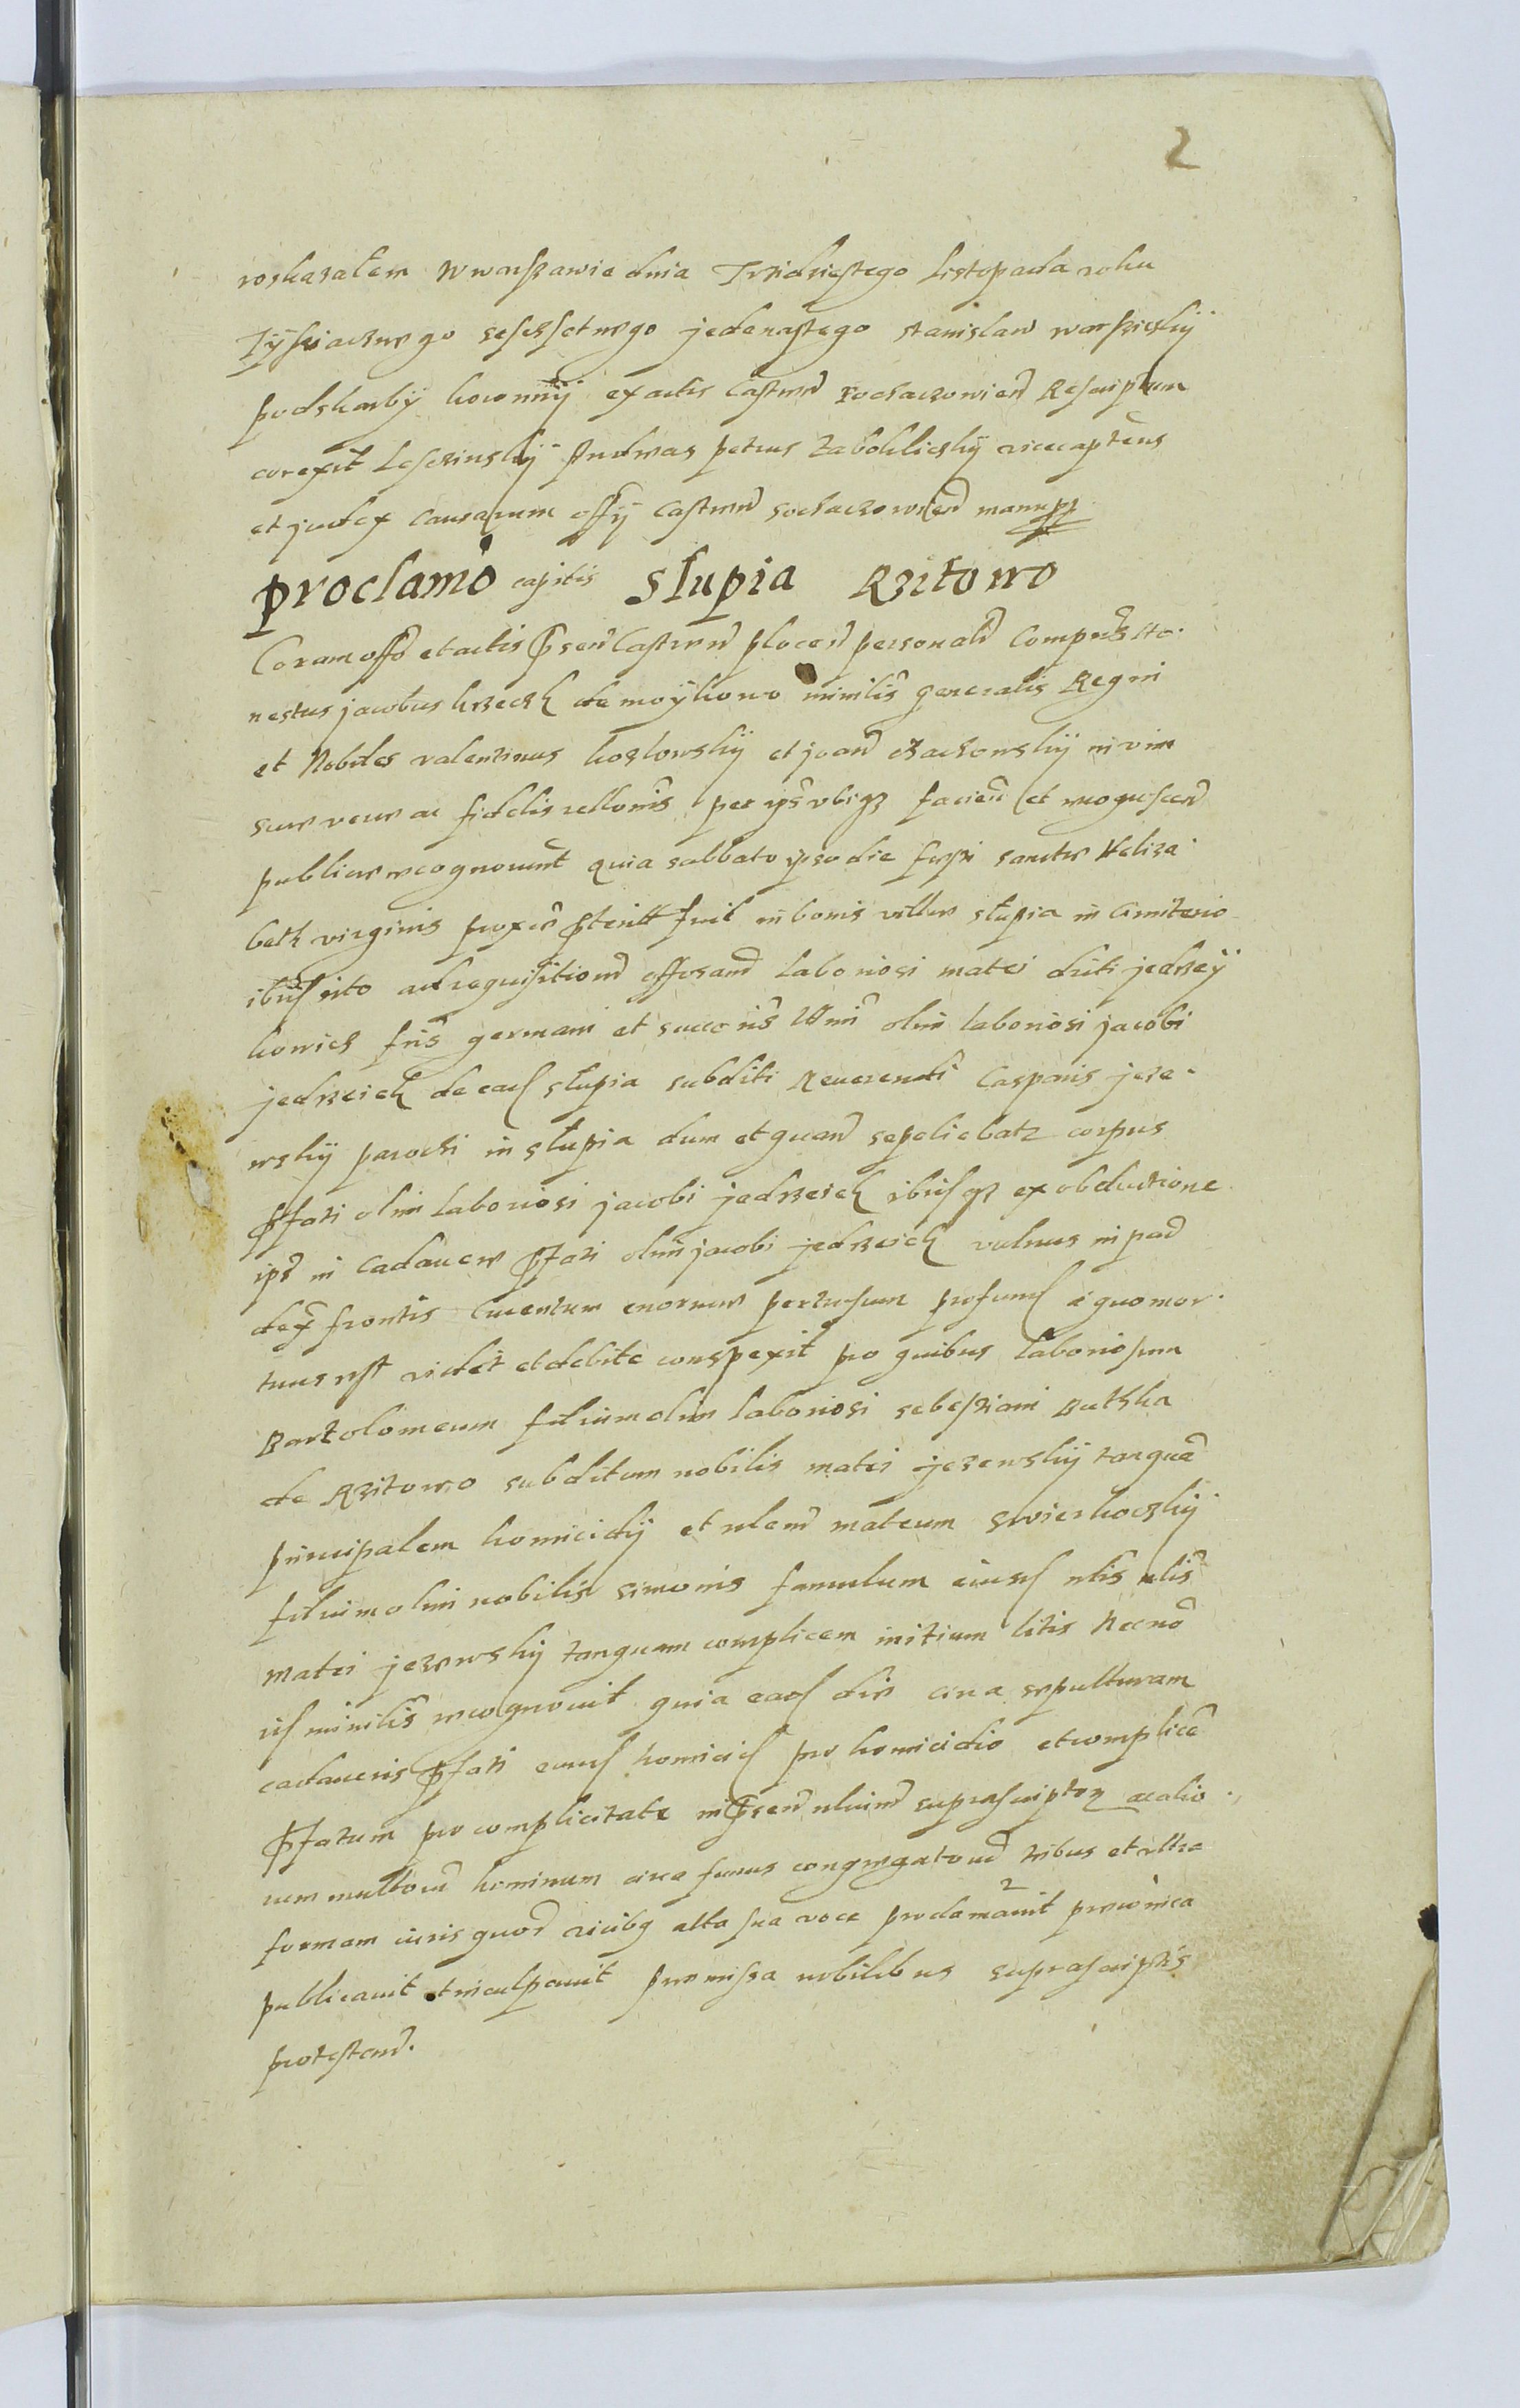 2
roskazałem w warszawie dnia Trzidziestego Listopada roku
Tÿsziącznego sescsetnego jedenastego stanislaw warszickÿ
podskarbÿ koronnÿ ex actis Castren sochaczowien Rescriptum
corexit Lesczinskÿ Andreas petrus Zabokliczkÿ vicecaptens
et judex causarum offÿ castren sochaczowien manupp
proclamo capitis Slupia Rzitowo
Coram offo et actis pnsen Castren plocen personalr Comparens Ho-
nestus jacobus krzeczk de moÿkowo minilis generalis Regni
et Nobiles valentinus kozlowskÿ et joan czaczowskÿ in vim
sue vere ac fidelis rellonis per ips ubiqz facien et recognoscen
publice recognouernt quia sabbato ipso die festi sancte Heliza-
beth virginis proxe pterito fuit in bonis ville słupia in Cimiterio
ibid sito ad requisitione offosam Laboriosi matei dicti jedrzeÿ
kowicz fris germani et succoris olim laboriosi jacobi
jedrzeick de ead słupia subditi Reuerendi Casparis jeze-
wskÿ parochi in słupia dum et quand sepeliebatz corpus
pfati olim laboriosi jacobi jedrzeick ibidqz ex obductione
ips in Cadauere pfati olim jacobi jedrzeick vulnus in parte
dex frontis Cruentum enorme pertusum profund a quo mor-
tuus est videt et debite conspexit pro quibus laboriosum
Bartolomeum filium olim laboriosi sebestiani Buthka
de Rzitowo subditum nobilis matei jezewskÿ tanquam
principalem homicidÿ et nlem mateum swierkockÿ
filium olim nobilis simonis famulum eiusd nlis
matei jezewskÿ tanquam complicem initium litis Necno
id minilis recognouit quia ead die circa sepulturam
cadaueris pfati eund homicid pro homicidio et complice
pfatum pro complicitate in pnsen nlium suprascriptor ac alio-
rum multorum hominum circa funus congregatorum tribus et ultra
formam iuris quor vicibq alta sua voce proclamauit prouinca
publicauit et inculpauit premissa nobilibus suprascriptis
protestand.